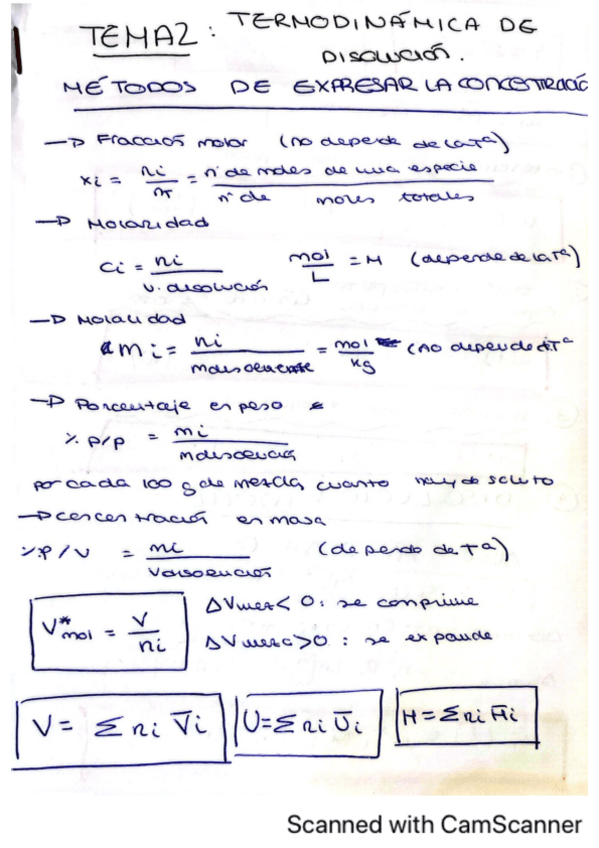 TEMA2: TERMODINÁMICA DE
DISOLUCIÓN.
MÉTODOS DE EXPRESAR LA CONCENTRACIÓ
→ Fracción molar (no depende de la Tª)
xi = ni / nT = nº de moles de una especie / nº de moles totales
→ Molaridad
Ci = ni / v. disolución mol / L = M (depende de la Tª)
→ Molalidad
mi = ni / mdisolvente = mol / kg (no depende de Tª
→ Porcentaje en peso
% p/p = mi / mdisolución
por cada 100 g de mezcla, cuanto hay de soluto
→ concentración en masa
% P/V = mi / Vdisolución (depende de Tª)
V*mol = V / ni
ΔVmez < 0: se comprime
ΔVmezc > 0: se expande
V = Σ ni V̄i
U = Σ ni Ūi
H = Σ ni H̄i
Scanned with CamScanner